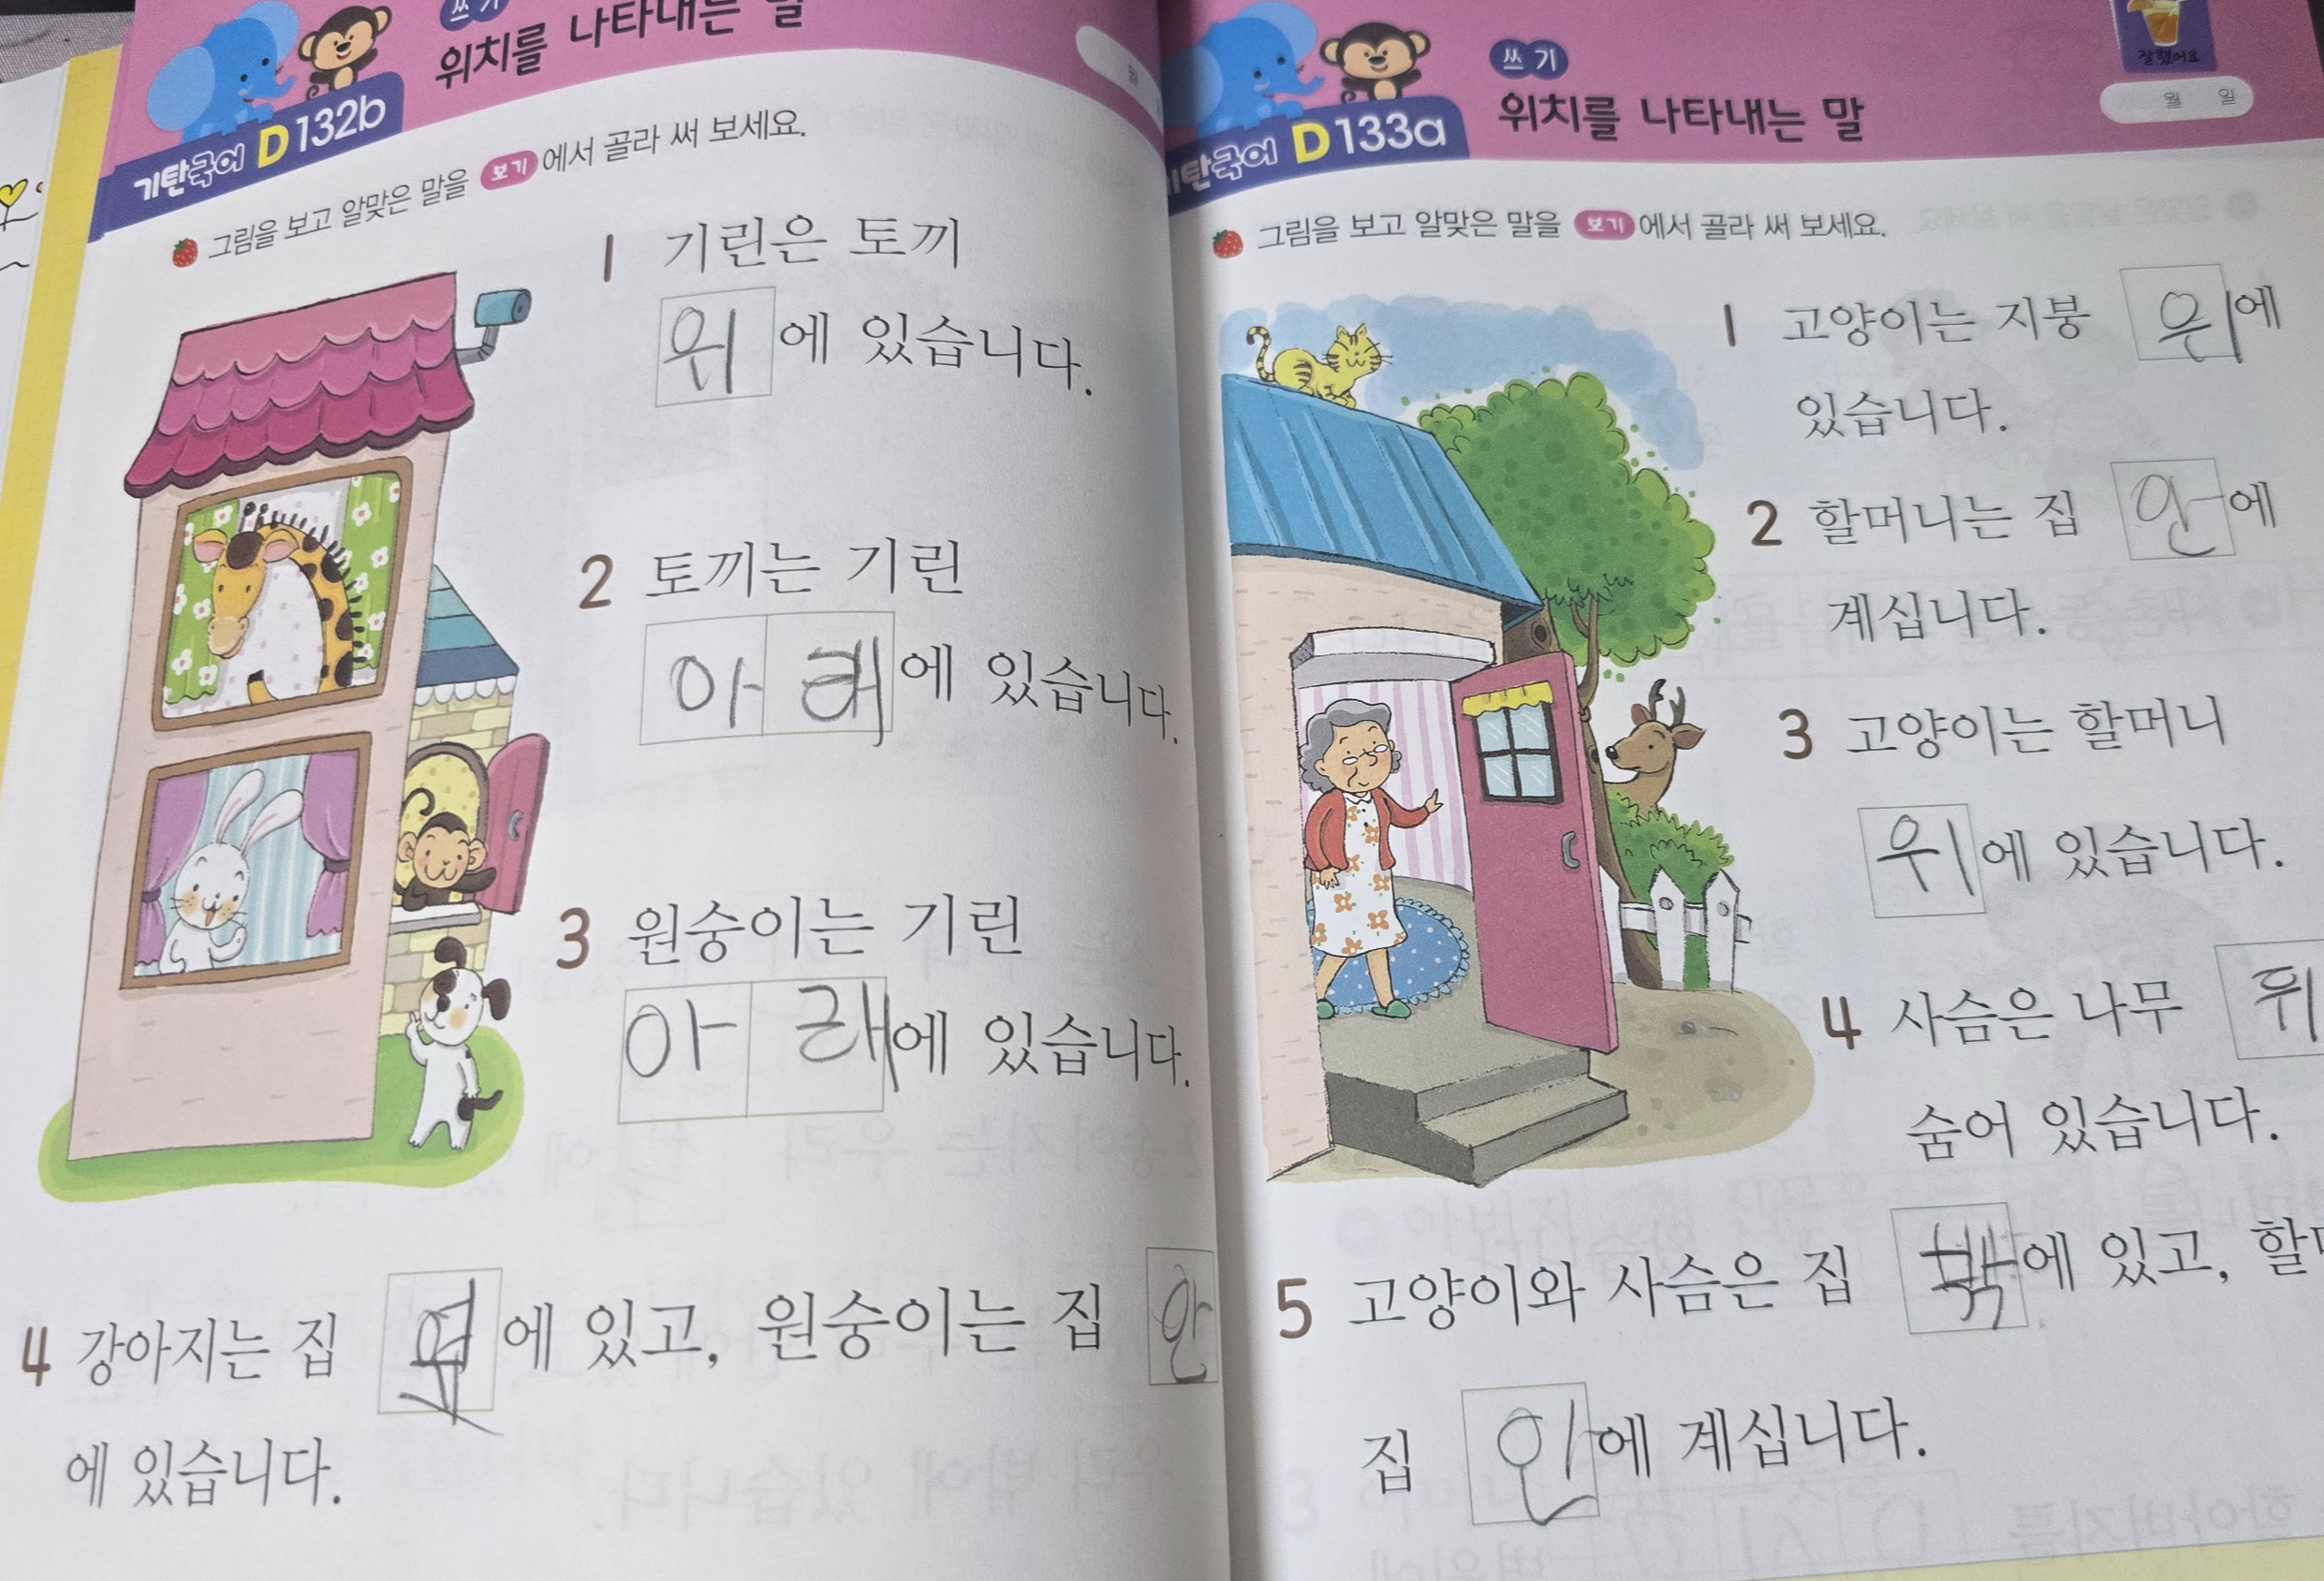 쓰기
위치를 나타내는 말
기탄국어 D132b
월
그림을 보고 알맞은 말을 보기 에서 골라 써 보세요.
1 기린은 토끼
위 에 있습니다.
2 토끼는 기린
아래 에 있습니다.
3 원숭이는 기린
아래 에 있습니다.
4 강아지는 집 에 있고, 원숭이는 집 안
에 있습니다.
쓰기
위치를 나타내는 말
잘했어요
월 일
기탄국어 D133a
그림을 보고 알맞은 말을 보기 에서 골라 써 보세요.
1 고양이는 지붕 위 에
있습니다.
2 할머니는 집 안 에
계십니다.
3 고양이는 할머니
위 에 있습니다.
4 사슴은 나무 뒤
숨어 있습니다.
5 고양이와 사슴은 집 밖 에 있고,
집 안 에 계십니다.